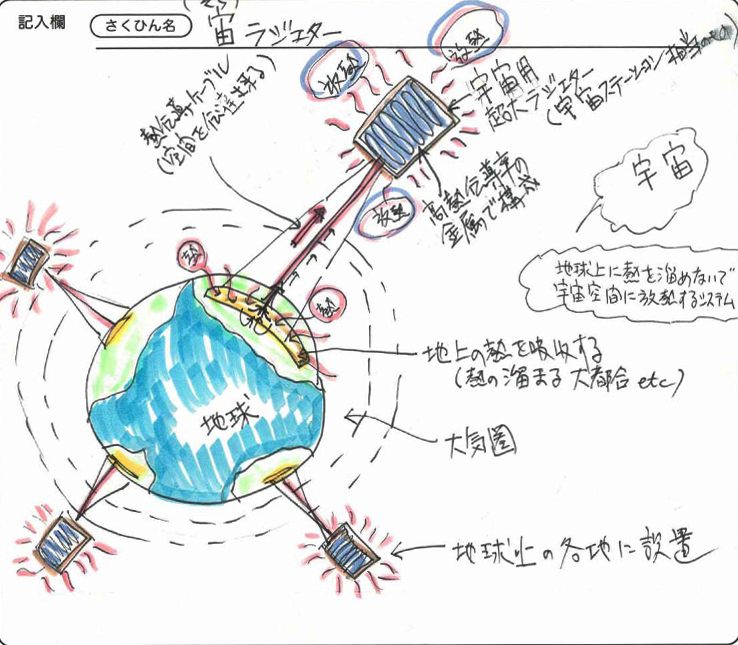 記入欄
さくひん名
宇宙ラジエター
放熱
放熱
熱伝導ケーブル
(空宙を伝達する)
宇宙用
超大ラジエター
(宇宙ステーション相当のもの)
放熱
高熱伝導率の
金属で構成
宇宙
地球上に熱を溜めないで
宇宙空間に放熱するシステム
熱
熱
地上の熱を吸収する
(熱の溜まる大都会etc)
地球
大気圏
地球上の各地に設置